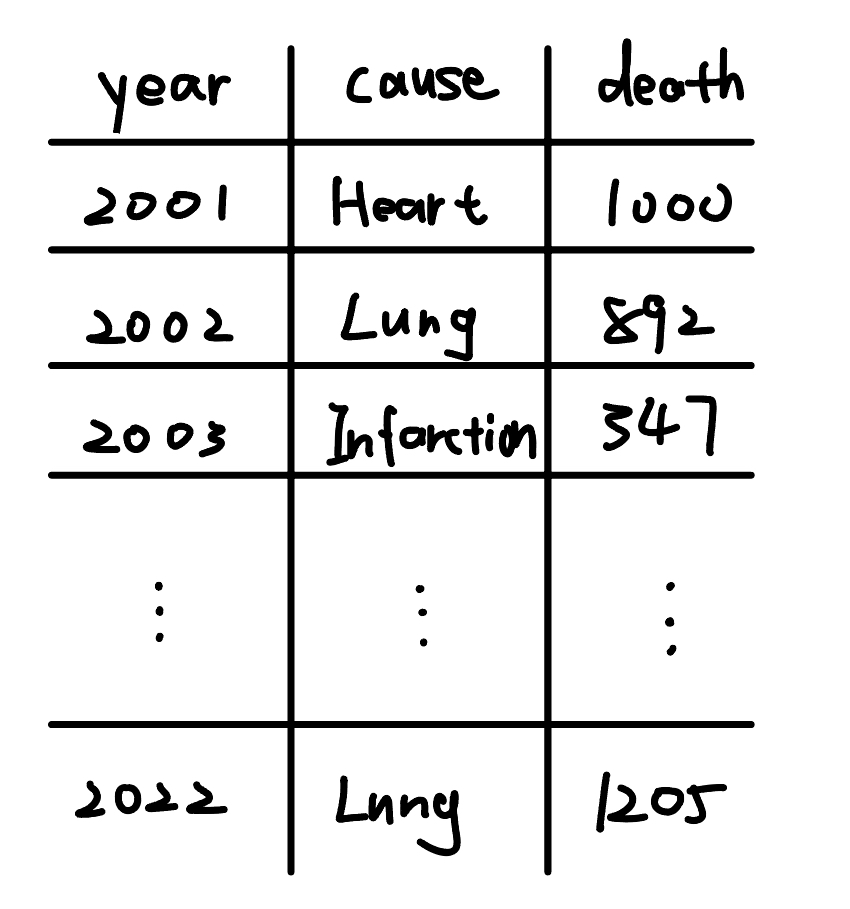 year cause death
2001 Heart 1000
2002 Lung 892
2003 Infarction 347
⋮ ⋮ ⋮
2022 Lung 1205